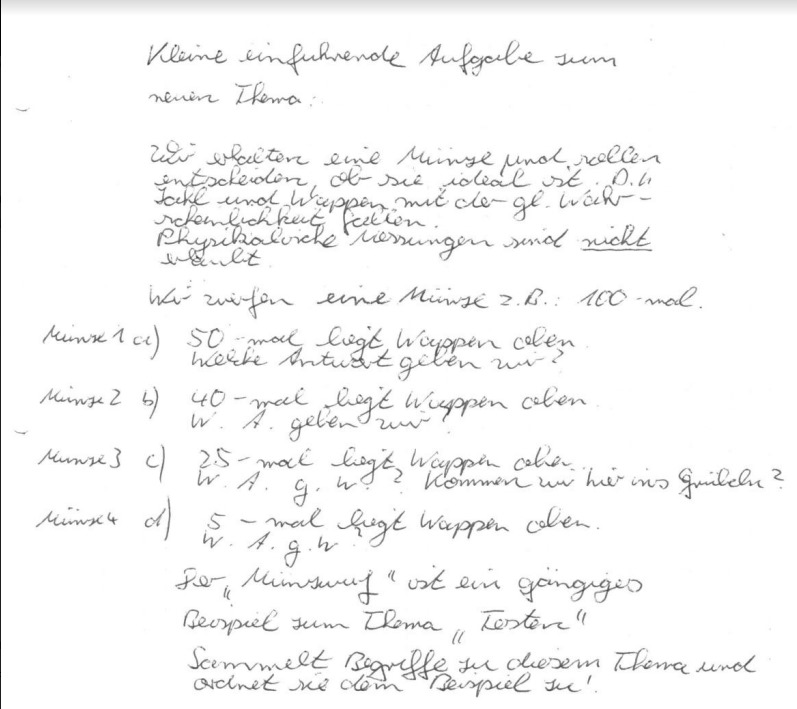 Kleine einführende Aufgabe zum
neuen Thema:
Wir erhalten eine Münze und sollen
entscheiden, ob sie ideal ist. D.h.
Zahl und Wappen mit der gl. Wahr-
scheinlichkeit fallen.
Physikalische Messungen sind nicht
erlaubt.
Wir werfen eine Münze z.B.: 100-mal.
Münze 1 a) 50-mal liegt Wappen oben.
Welche Antwort geben wir?
Münze 2 b) 40-mal liegt Wappen oben.
W. A. geben wir?
Münze 3 c) 25-mal liegt Wappen oben.
W. A. g. w.? Kommen wir hier ins Grübeln?
Münze 4 d) 5-mal liegt Wappen oben.
W. A. g. w.?
Der „Münzwurf“ ist ein gängiges
Beispiel zum Thema „Testen“
Sammelt Begriffe zu diesem Thema und
ordnet sie dem Beispiel zu!